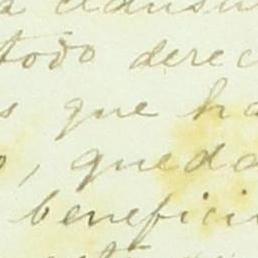 a clausu
todo derec
s que ha
o, queda
benefici